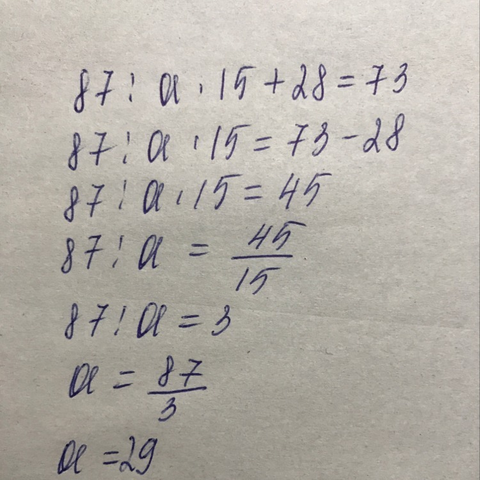 87 : a · 15 + 28 = 73
87 : a · 15 = 73 - 28
87 : a · 15 = 45
87 : a = 45/15
87 : a = 3
a = 87/3
a = 29